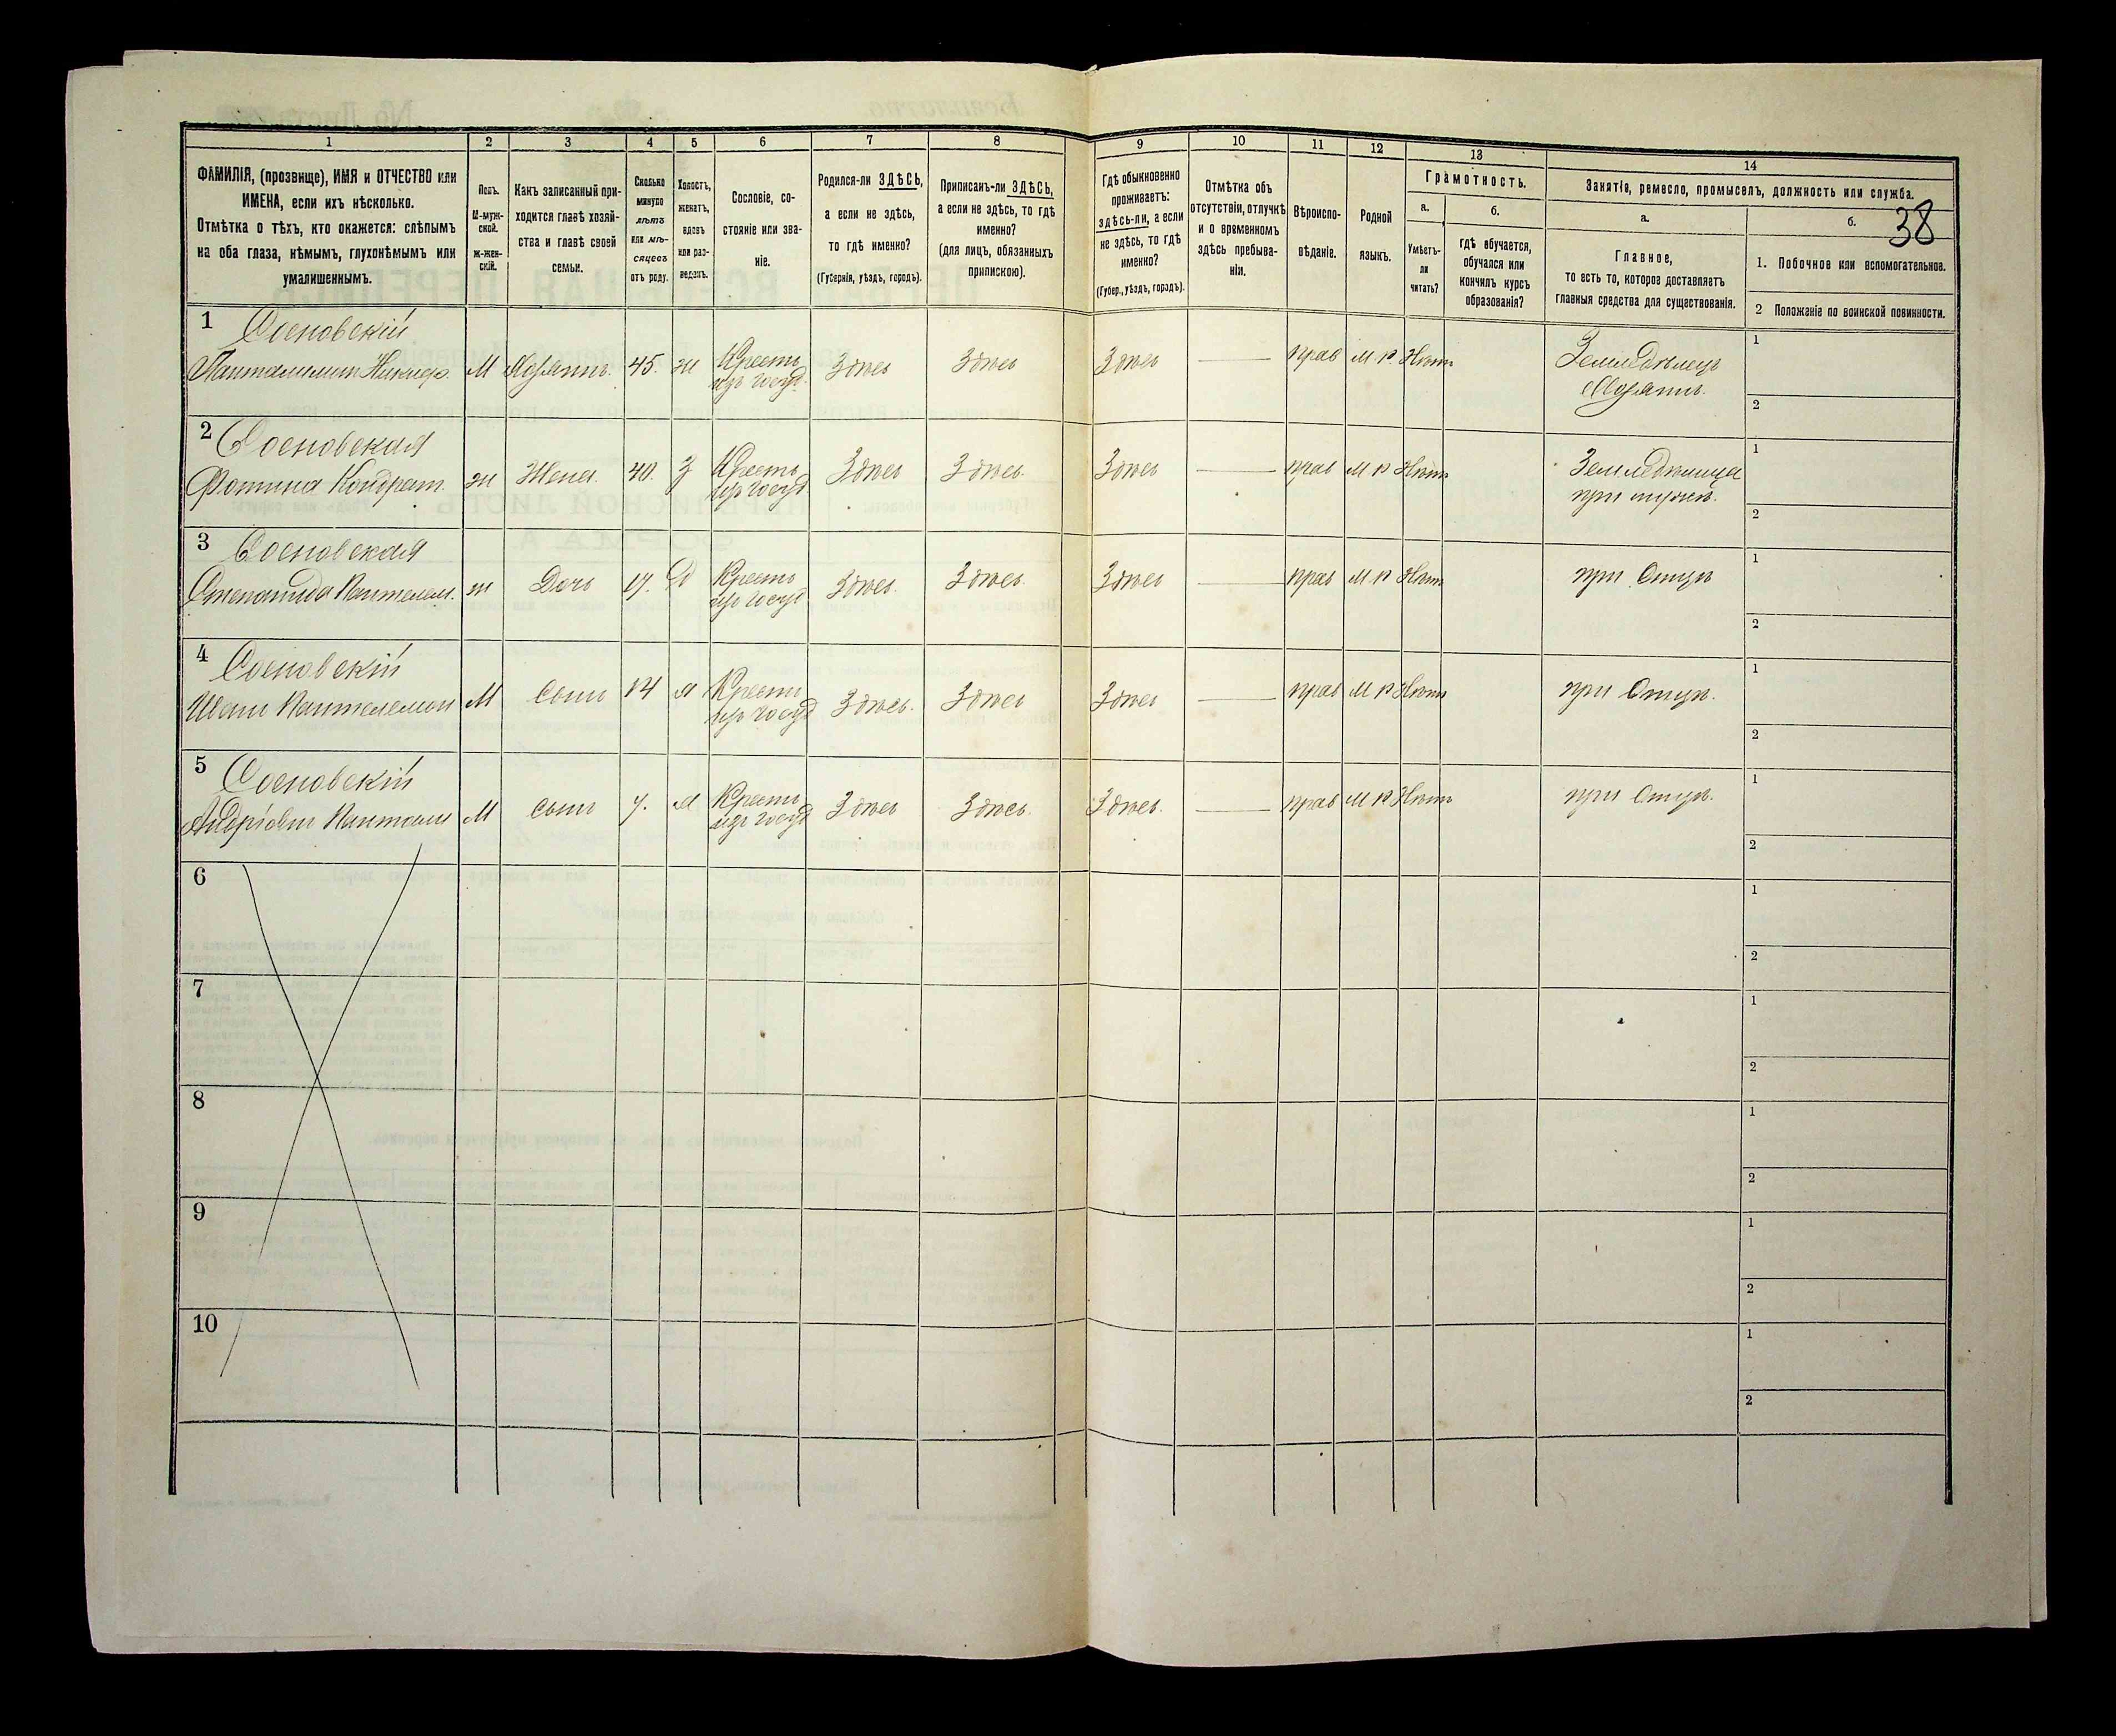 38
1 2 3 4 5 6 7 8 9 10 11 12 13 14
ФАМИЛІЯ, (прозвище), ИМЯ и ОТЧЕСТВО или ИМЕНА, если ихъ нѣсколько.
Отмѣтка о тѣхъ, кто окажется: слѣпымъ на оба глаза, нѣмымъ, глухонѣмымъ или умалишеннымъ.
Полъ. М-мужской. Ж-женскій.
Какъ записанный приходится главѣ хозяйства и главѣ своей семьи.
Сколько минуло лѣтъ или мѣсяцевъ отъ роду.
Холостъ, женатъ, вдовъ или разведенъ.
Сословіе, состояніе или званіе.
Родился-ли ЗДѢСЬ, а если не здѣсь, то гдѣ именно?
(Губернія, уѣздъ, городъ).
Приписанъ-ли ЗДѢСЬ, а если не здѣсь, то гдѣ именно?
(для лицъ, обязанныхъ припискою).
Гдѣ обыкновенно проживаетъ: здѣсь-ли, а если не здѣсь, то гдѣ именно?
(Губер., уѣздъ, городъ).
Отмѣтка объ отсутствіи, отлучкѣ и о временномъ здѣсь пребываніи.
Вѣроисповѣданіе.
Родной языкъ.
Грамотность.
а. Умѣетъ-ли читать?
б. Гдѣ обучается, обучался или кончилъ курсъ образованія?
Занятіе, ремесло, промыселъ, должность или служба.
а. Главное, то есть то, которое доставляетъ главныя средства для существованія.
б.
1. Побочное или вспомогательное.
2 Положеніе по воинской повинности.
1 Сосновскій
М Хозяинъ. 45. ж Кресть. изъ госуд. Здѣсь Здѣсь Здѣсь — прав М Р Нѣтъ Земледѣлецъ 1
Хозяинъ. 2
2 Сосновская
Фотина Кондрат. ж Жена. 40. З Кресть. изъ госуд Здѣсь Здѣсь. Здѣсь — прав М Р Нѣтъ Земледѣлица 1
при мужѣ. 2
3 Сосновская
Степанида Пантелем. ж Дочь 17. Д Кресть. изъ госуд Здѣсь. Здѣсь. Здѣсь — прав М Р Нѣтъ при Отцѣ 1
2
4 Сосновскій
Иванъ Пантелемон М Сынъ 14 Х Кресть. изъ госуд Здѣсь. Здѣсь Здѣсь — прав М Р Нѣтъ при Отцѣ. 1
2
5 Сосновскій
М Сынъ 7. Х Кресть. изъ госуд Здѣсь Здѣсь. Здѣсь. — прав М Р Нѣтъ при Отцѣ. 1
2
6 1
2
7 1
2
8 1
2
9 1
2
10 1
2